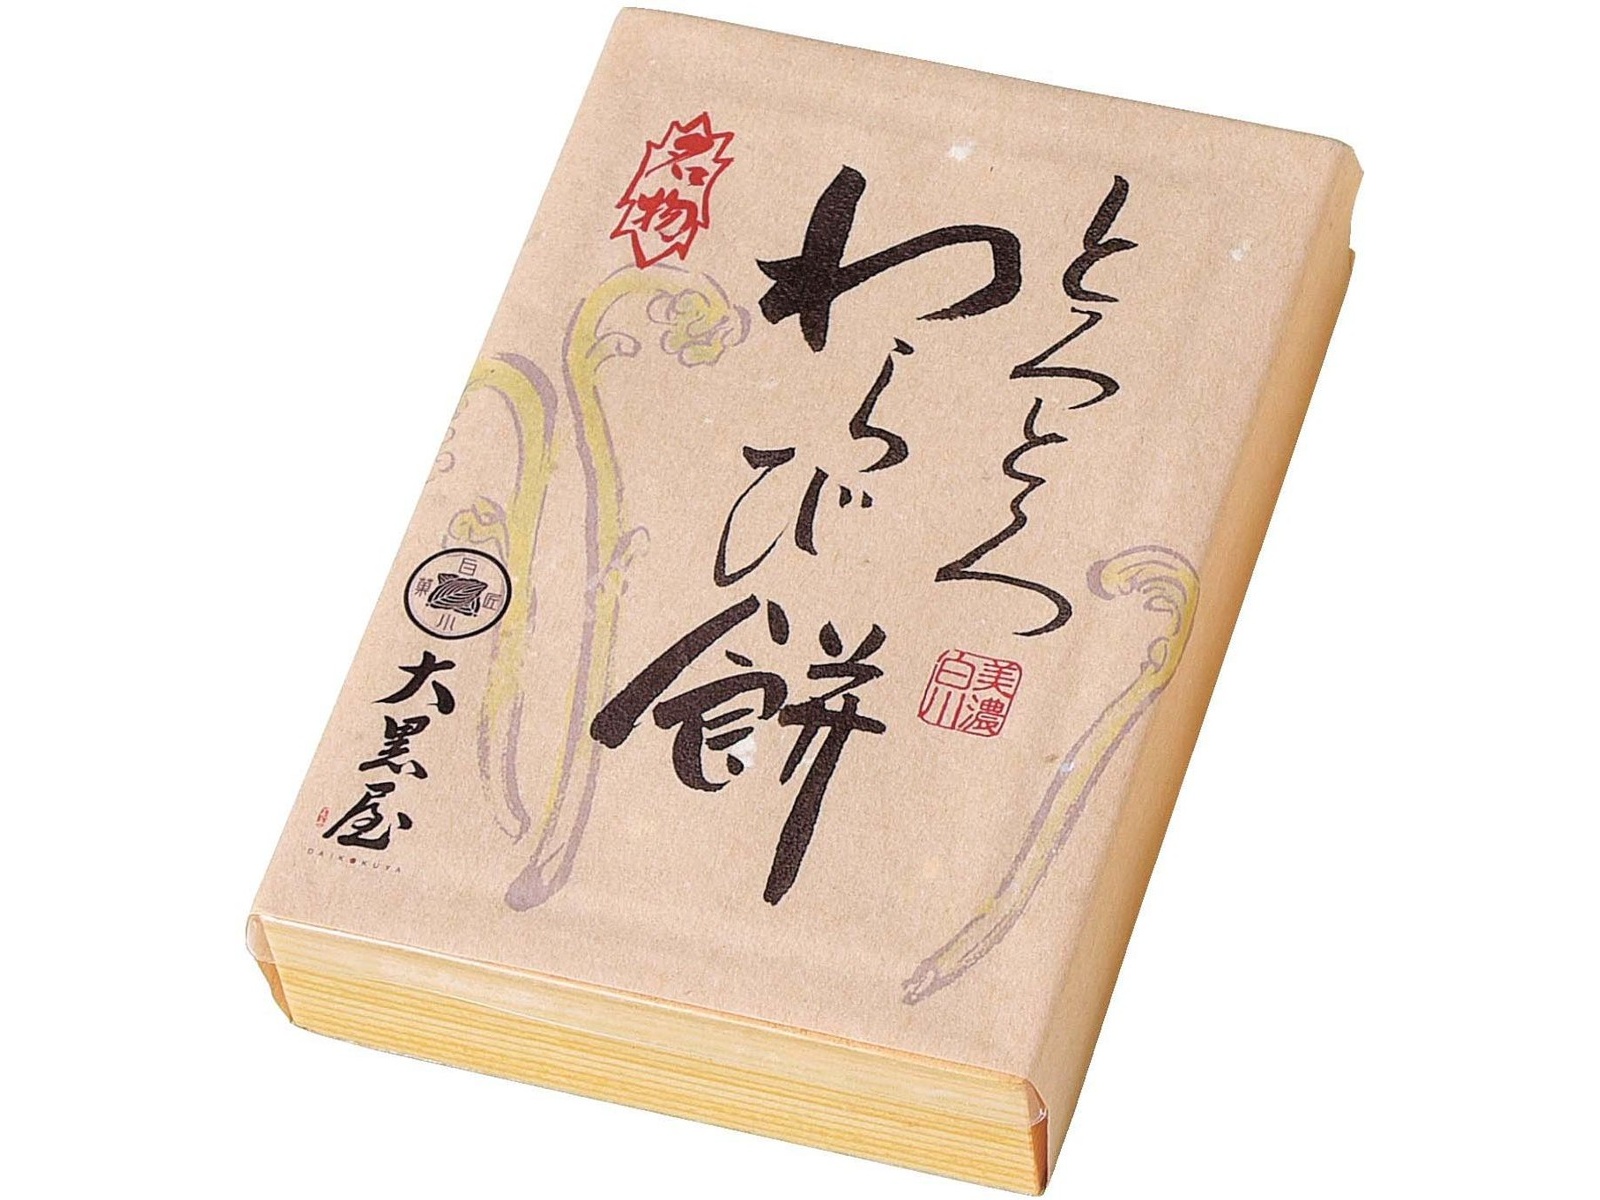 とろとろ
わらび餅
名物
美濃
白川
菓匠
白川
大黒屋
DAIKOKUYA